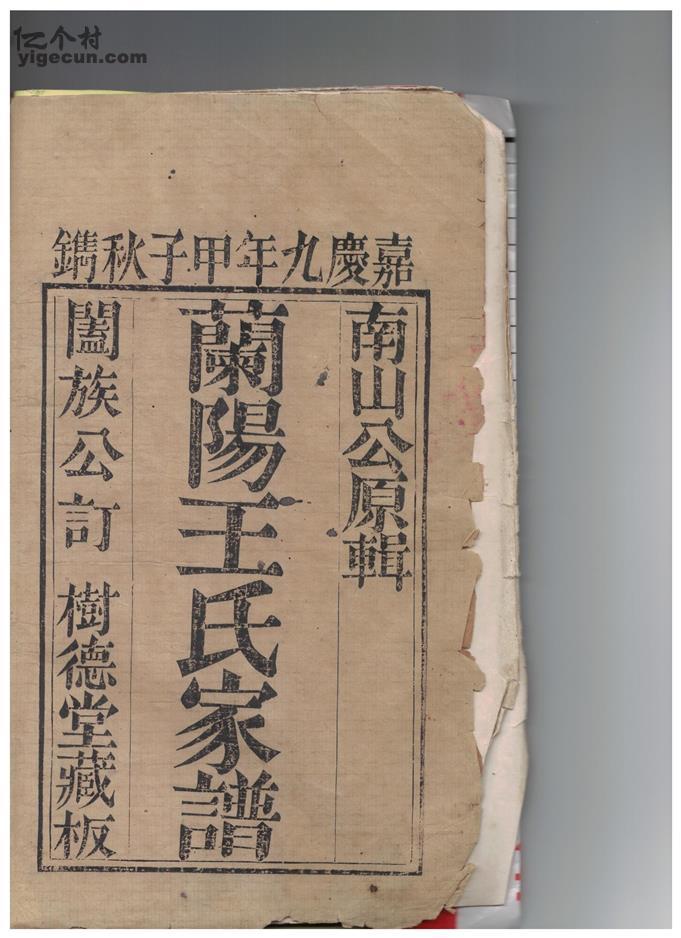 亿个村
yigecun.com
嘉慶九年甲子秋鐫
南山公原輯
蘭陽王氏家譜
闔族公訂 樹德堂藏板